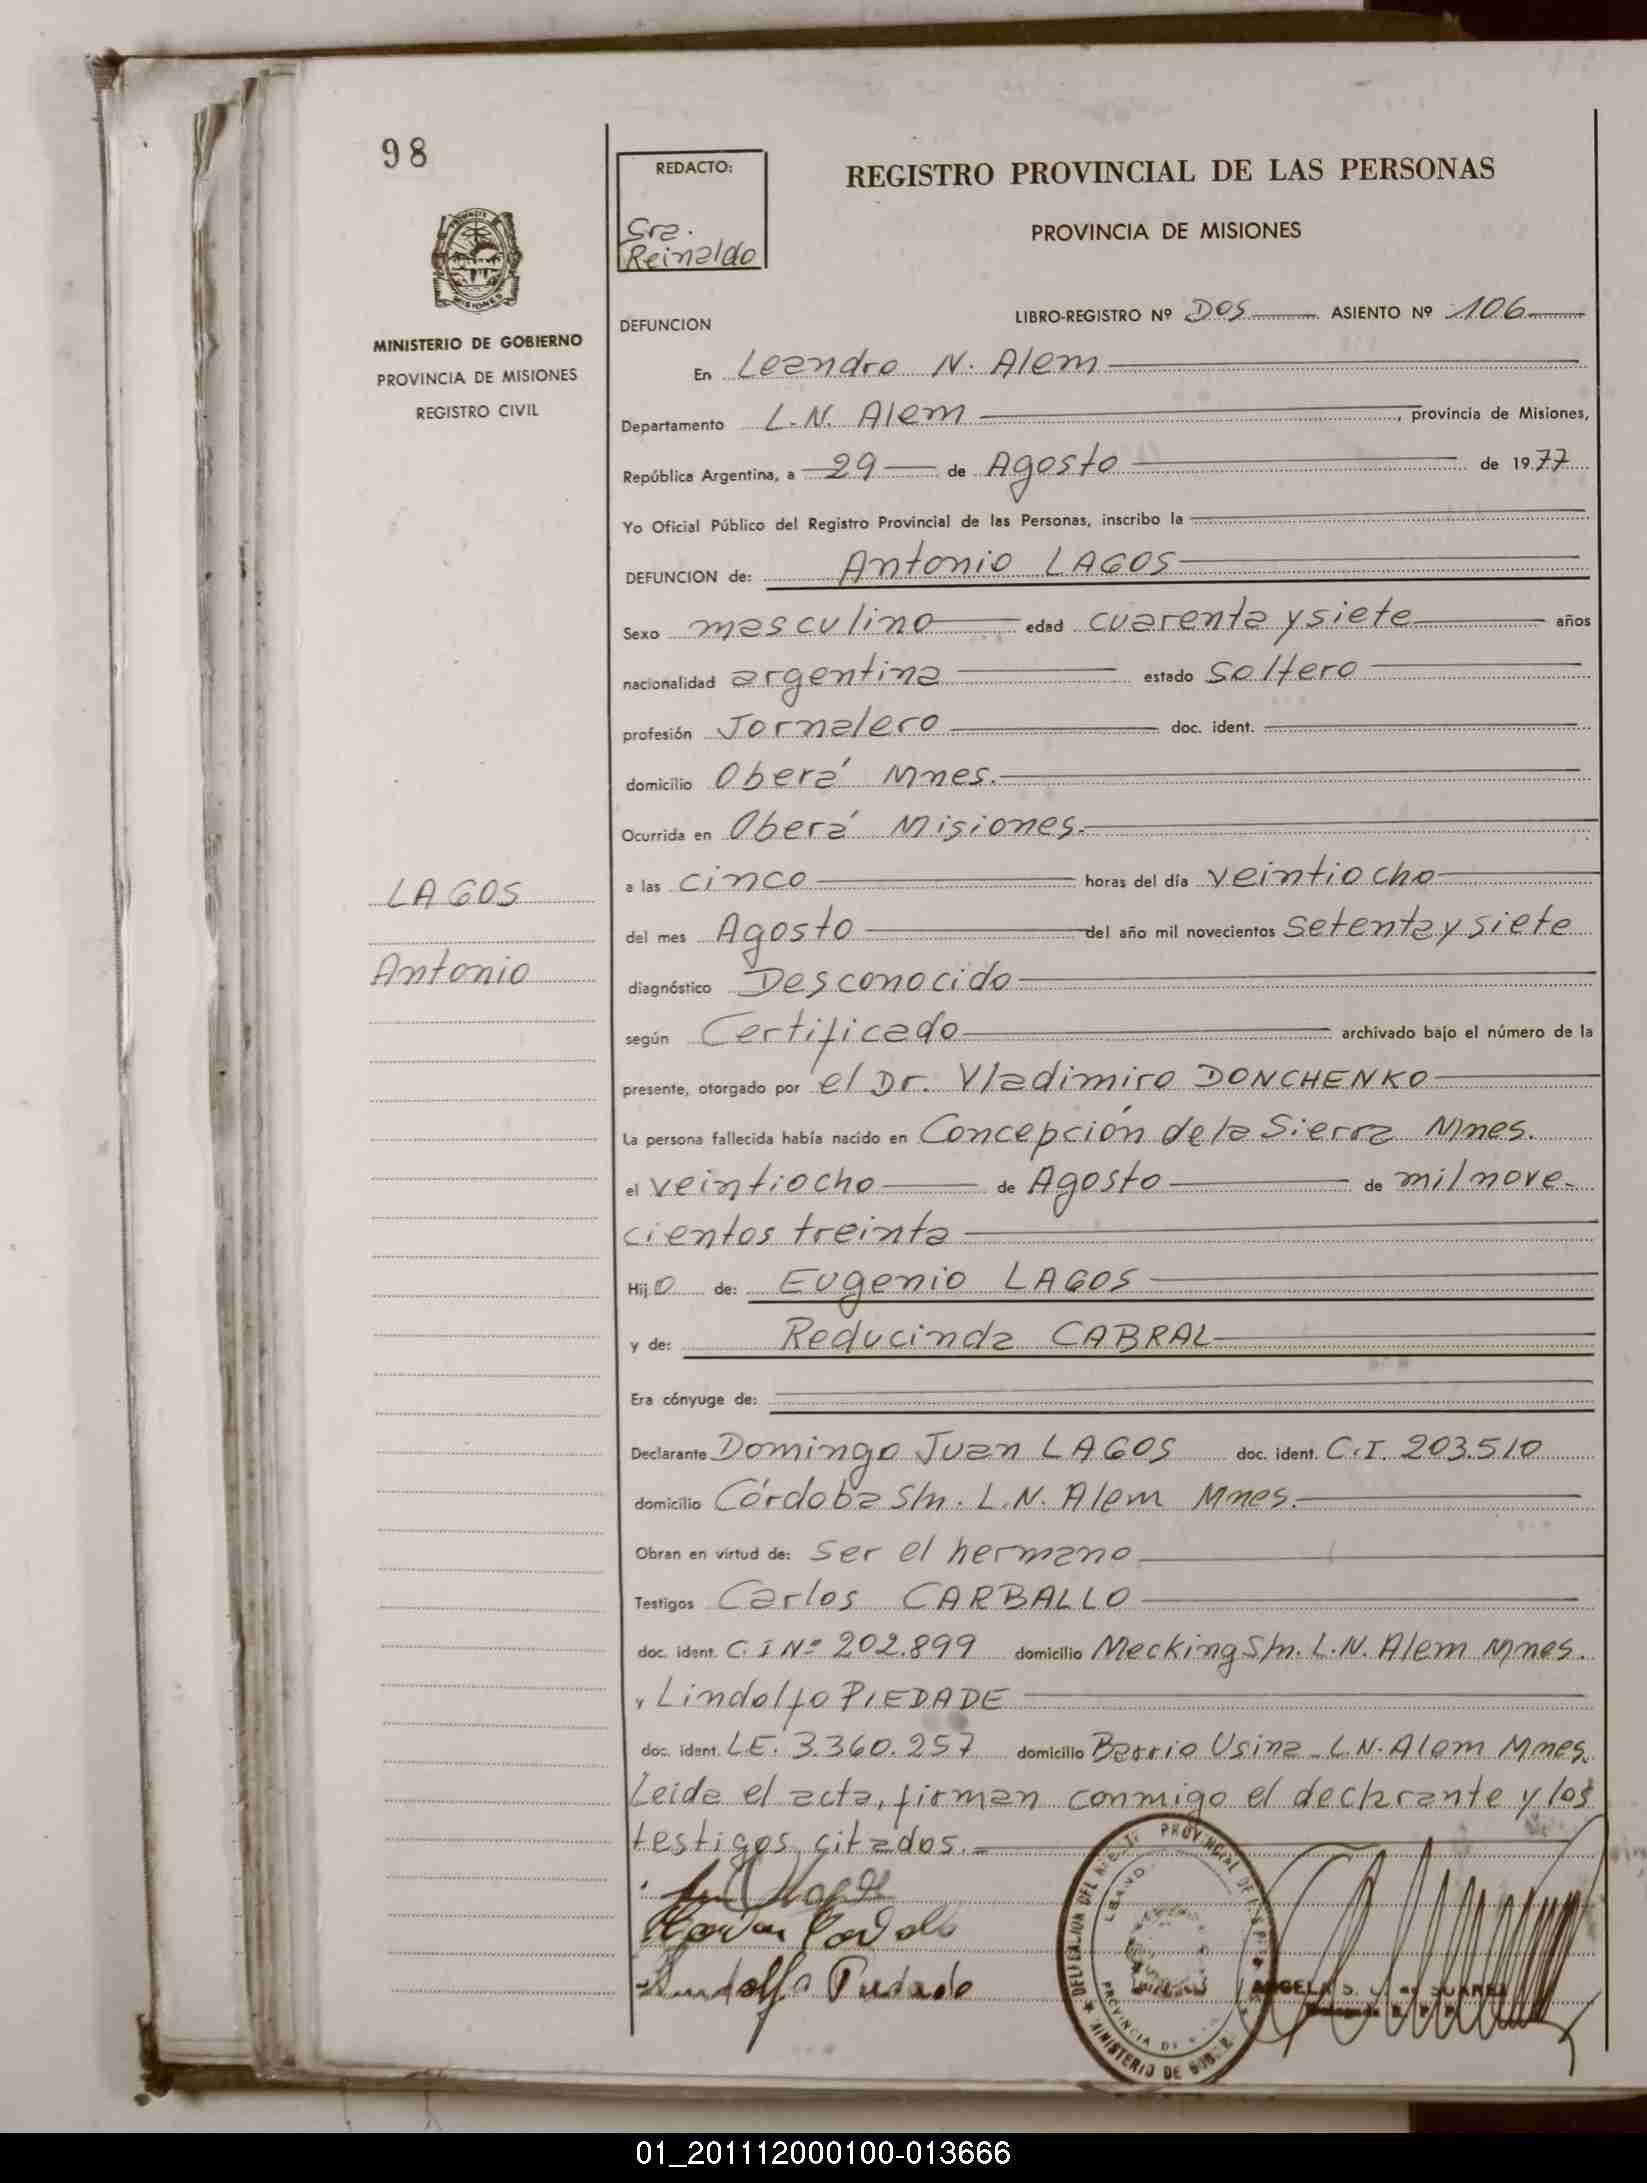 98
REDACTO:
Sra.
Reinaldo
REGISTRO PROVINCIAL DE LAS PERSONAS
PROVINCIA DE MISIONES
MISIONES
MINISTERIO DE GOBIERNO
PROVINCIA DE MISIONES
REGISTRO CIVIL
LIBRO-REGISTRO Nº Dos ASIENTO Nº 106
DEFUNCION
En Leandro N. Alem
Departamento L.N. Alem, provincia de Misiones,
República Argentina, a 29 de Agosto de 1977
Yo Oficial Público del Registro Provincial de las Personas, inscribo la
DEFUNCION de: Antonio LAGOS
Sexo masculino edad cuarenta y siete años
nacionalidad argentina estado soltero
profesión Jornalero doc. ident.
domicilio Oberá Mnes.
Ocurrida en Oberá Misiones.
LAGOS
Antonio
a las cinco horas del día veintiocho
del mes Agosto del año mil novecientos setenta y siete
diagnóstico Desconocido
según Certificado archivado bajo el número de la
presente, otorgado por el Dr. Vladimiro DONCHENKO
La persona fallecida había nacido en Concepción de la Sierra Mnes.
el veintiocho de Agosto de mil nove-
cientos treinta
Hijo de: Eugenio LAGOS
y de: Reducinda CABRAL
Era cónyuge de:
Declarante Domingo Juan LAGOS doc. ident. C.I. 203.510
domicilio Córdoba S/n. L.N. Alem Mnes.
Obran en virtud de: ser el hermano
Testigos Carlos CARBALLO
doc. ident. C.I Nº 202.899 domicilio Mecking S/n. L.N. Alem Mnes.
y Lindolfo PIEDADE
doc. ident. L.E. 3.360.257 domicilio Barrio Usina L.N. Alem Mnes.
Leida el acta, firman conmigo el declarante y los
testigos citados.
PROVINCIAL DE
DELEGACION DEL
PROVINCIA DE
MINISTERIO DE
ANGELA S. SUAREZ
01_201112000100-013666